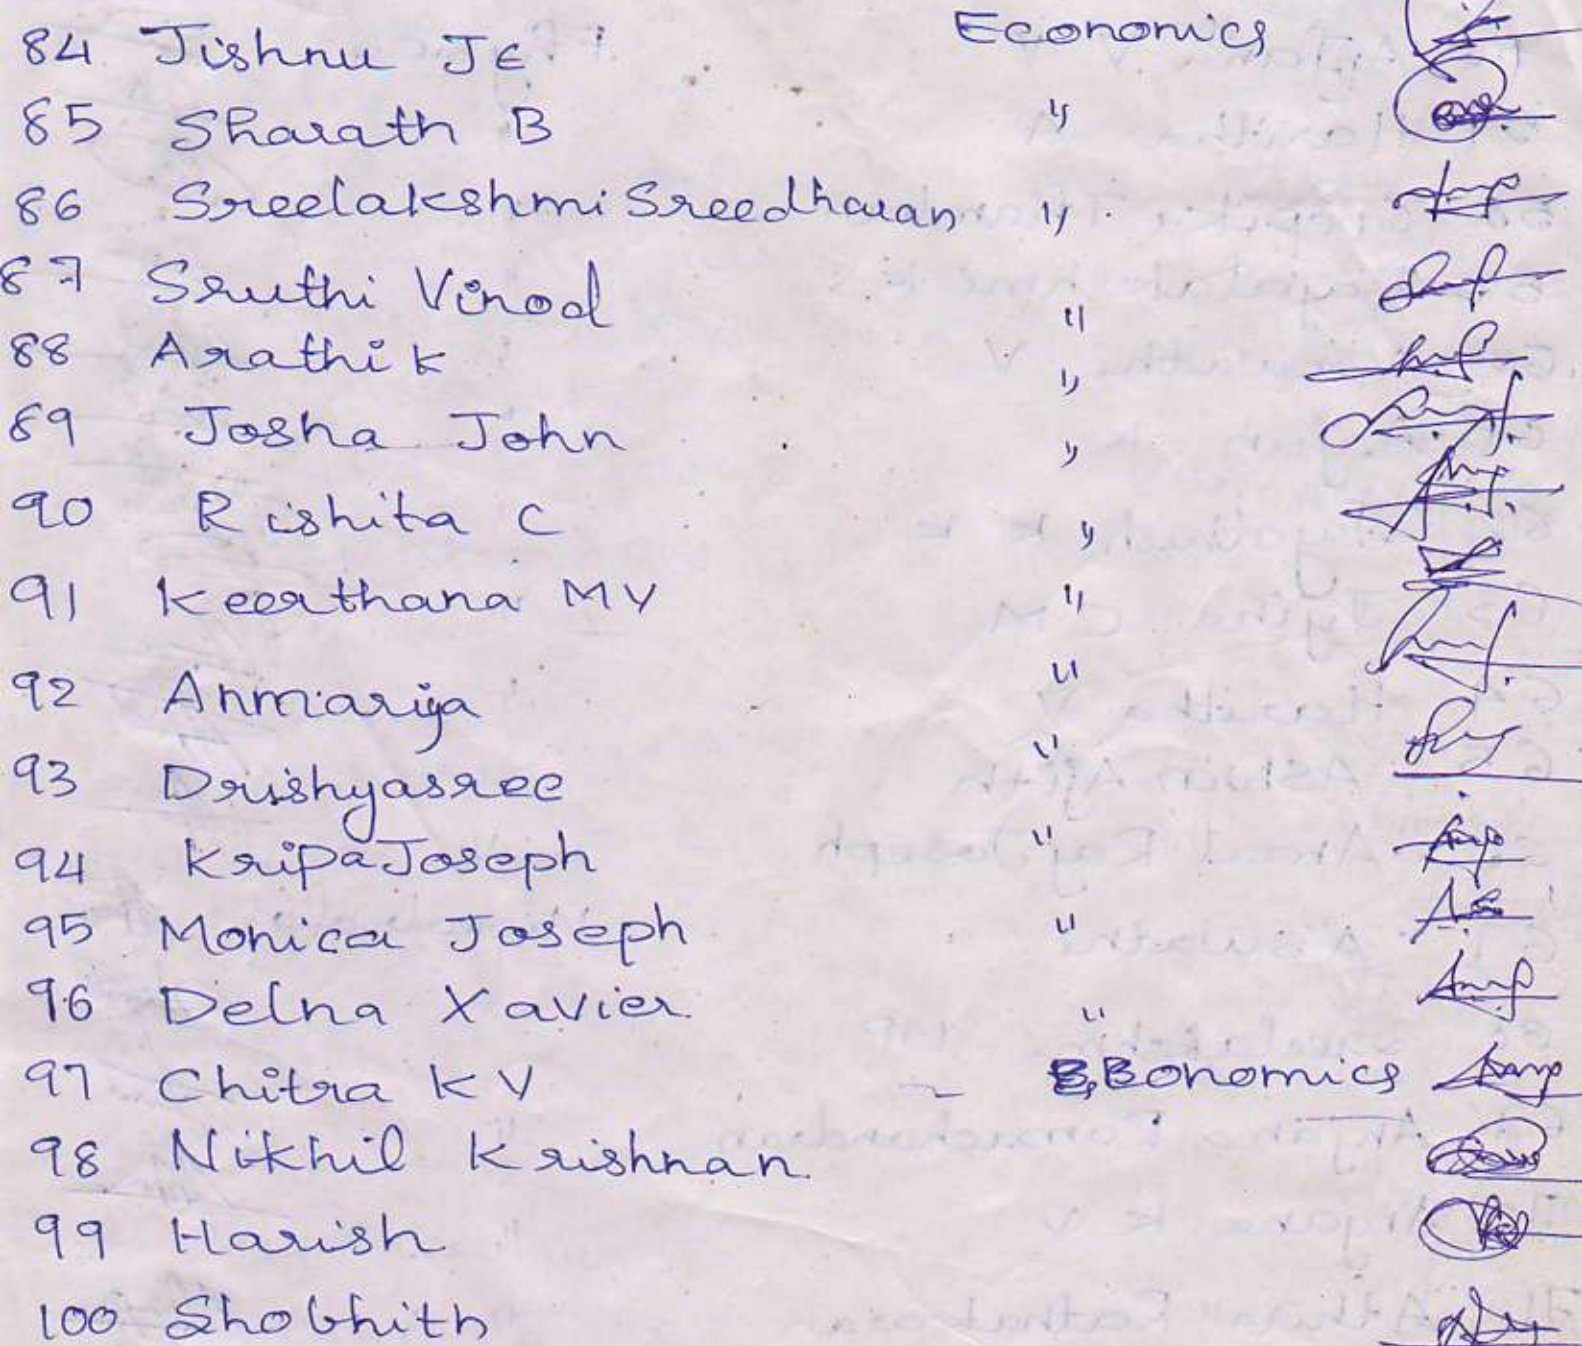 84 Jishnu JE Economics
85 Sharath B "
86 Sreelakshmi Sreedharan "
87 Sruthi Vinod "
88 Arathi K "
89 Josha John "
90 Rishita C "
91 Keerthana MV "
92 Anmariya "
93 Drishyasree "
94 Kripa Joseph "
95 Monica Joseph "
96 Delna Xavier "
97 Chitra KV Bonomics
98 Nikhil Krishnan
99 Harish
100 Shobhith